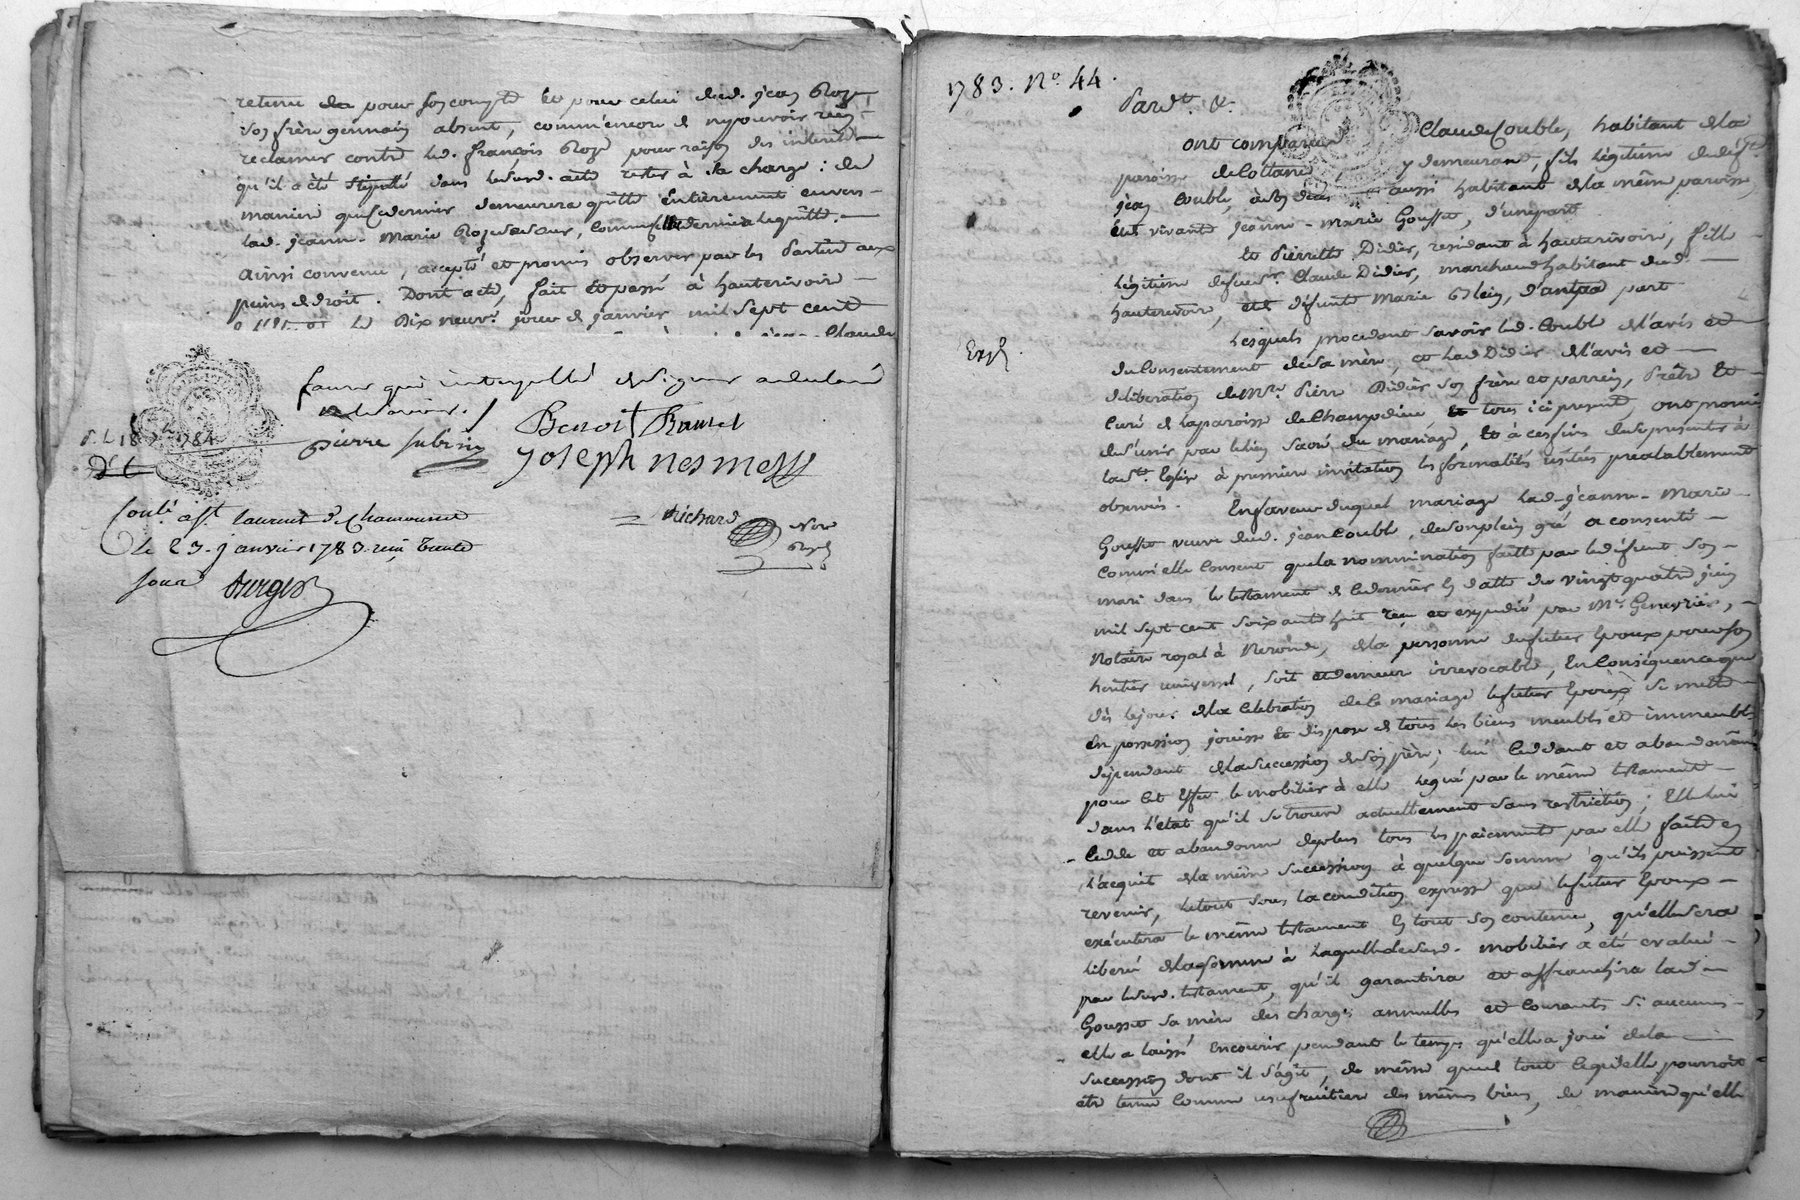 retenu de pour son compte et pour celui dud. jean Roze
son frère germain absent, comm'encore de ny pouvoir rien
reclamer contre led. françois Roze pour raison des interets
qu'il a été stipulé dans led. acte rester à sa charge : de
maniere que ce dernier demeurera quitte entierement envers
lad. jeanne-Marie Roze sa sœur, comme elle dernier le quitte.
Ainsi convenu, accepté et promis observer par les Parties aux
peines de droit. Dont acte, fait et passé à hauterivoire
Le Dix neuv.e jour de janvier mil sept cent
Claude
faure qui interpellé de signer a declaré
ne le savoir. /
Benoit
pierre subrin
joseph nesmess
d. L. 18 1784
Conlé. a st. laurent de Chamousset
Richard
Le 23. janvier 1783. reçu trente
Not. Royal
sous
1783. No. 44.
Pardt. &.
ont comparu Claude Couble, habitant de la
paroisse de Cottance y demeurant, fils légitime de deft.
jean Couble, de son vivant aussi habitant de la même paroisse
et vivante jeanne-marie Gousset, d'une part
et Pierrette Didier, residant à hauterivoire, fille
légitime de sieur. Claude Didier, marchand habitant aud.
hauterivoire, et de defunte Marie Blein, d'autre part
Expé.
Lesquels procedant savoir led. Couble de l'avis et
du Consentement de sa mère, et lad. Didier de l'avis et
deliberation de Mre. Pierre Didier son frère et parrein, Prêtre et
Curé de la paroisse de Champdieu et tous ici présents, ont promis
de s'unir par le lien sacré du mariage, et à ces fins de se presenter à
la Ste. Eglise à premiere invitation les formalités usitées prealablement
observées. En faveur duquel mariage lad. jeanne-Marie
Gousset veuve dud. jean Couble, de son plein gré a consenti
comm'elle consent que la nommination faite par led. defunt son
mari dans le testament de ce dernier en datte du vingt quatre juin
mil sept cent soixante huit reçu et expedié par Me. Genevrier,
Notaire royal à Neronde, de la personne du futur Epoux pour son
heritier universel, soit et demeure irrevocable, En Conséquence que
dès le jour de la celebration de ce mariage le futur Epoux se mette
en possession jouisse et dispose de tous les biens meubles et immeubles
dependant de la succession de son père ; lui ceddant et abandonnant
pour cet effet le mobilier à elle legué par le même testament
dans l'état qu'il se trouve actuellement sans restriction ; Elle lui
cedde et abandonne de plus tous les paiements par elle faits en
l'acquit de la même succession à quelque somme qu'ils puissent
revenir, le tout sous la condition expresse que le futur Epoux
exécutera le même testament en tout son contenu, qu'elle sera
liberée de la somme à laquelle led. mobilier a été evalué
par led. testament, qu'il garantira et affranchira lad.
Gousset sa mère des charges annuelles et courants si aucunes
elle a laissé encourir pendant le temps qu'elle a joui de la
succession dont il s'agit, de même que de tout ce qu'elle pourroit
etre tenue comme usufruitiere des mêmes biens, de maniere qu'elle